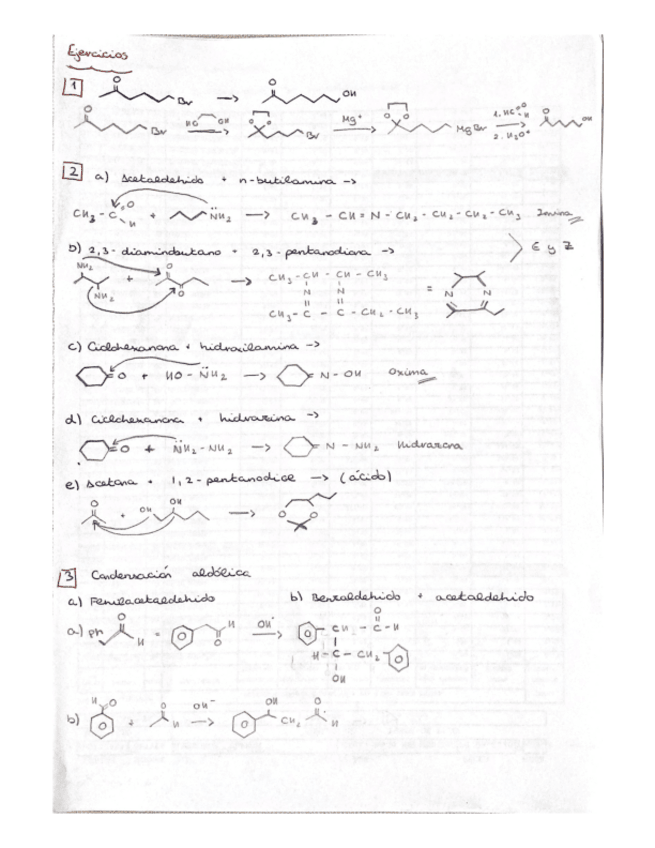 Ejercicios
1
O Br → O OH
O Br HO OH → O O Br Mg⁺ → O O MgBr 1. HC=O H 2. H₃O⁺ → O OH
2 a) Acetaldehido + n-butilamina →
CH₃ - C =O H + NH₂ → CH₃ - CH = N - CH₂ - CH₂ - CH₂ - CH₃ Imina
b) 2,3-diaminobutano + 2,3-pentanodiona → E y Z
NH₂ NH₂ + O O → CH₃ - CH - CH - CH₃
N N = N N
CH₃ - C - C - CH₂ - CH₃
c) Ciclohexanona + hidroxilamina →
=O + HO - NH₂ → = N - OH Oxima
d) Ciclohexanona + hidrazina →
=O + NH₂ - NH₂ → = N - NH₂ Hidrazona
e) Acetona + 1,2-pentanodiol → (ácido)
O + OH OH → O O
3 Condensación aldólica
a) Fenilacetaldehido b) Benzaldehido + acetaldehido
a) Ph O H = O H OH⁻ → CH - C - H O
H - C - CH₂
OH
b) H O + O H OH⁻ → OH CH₂ O H